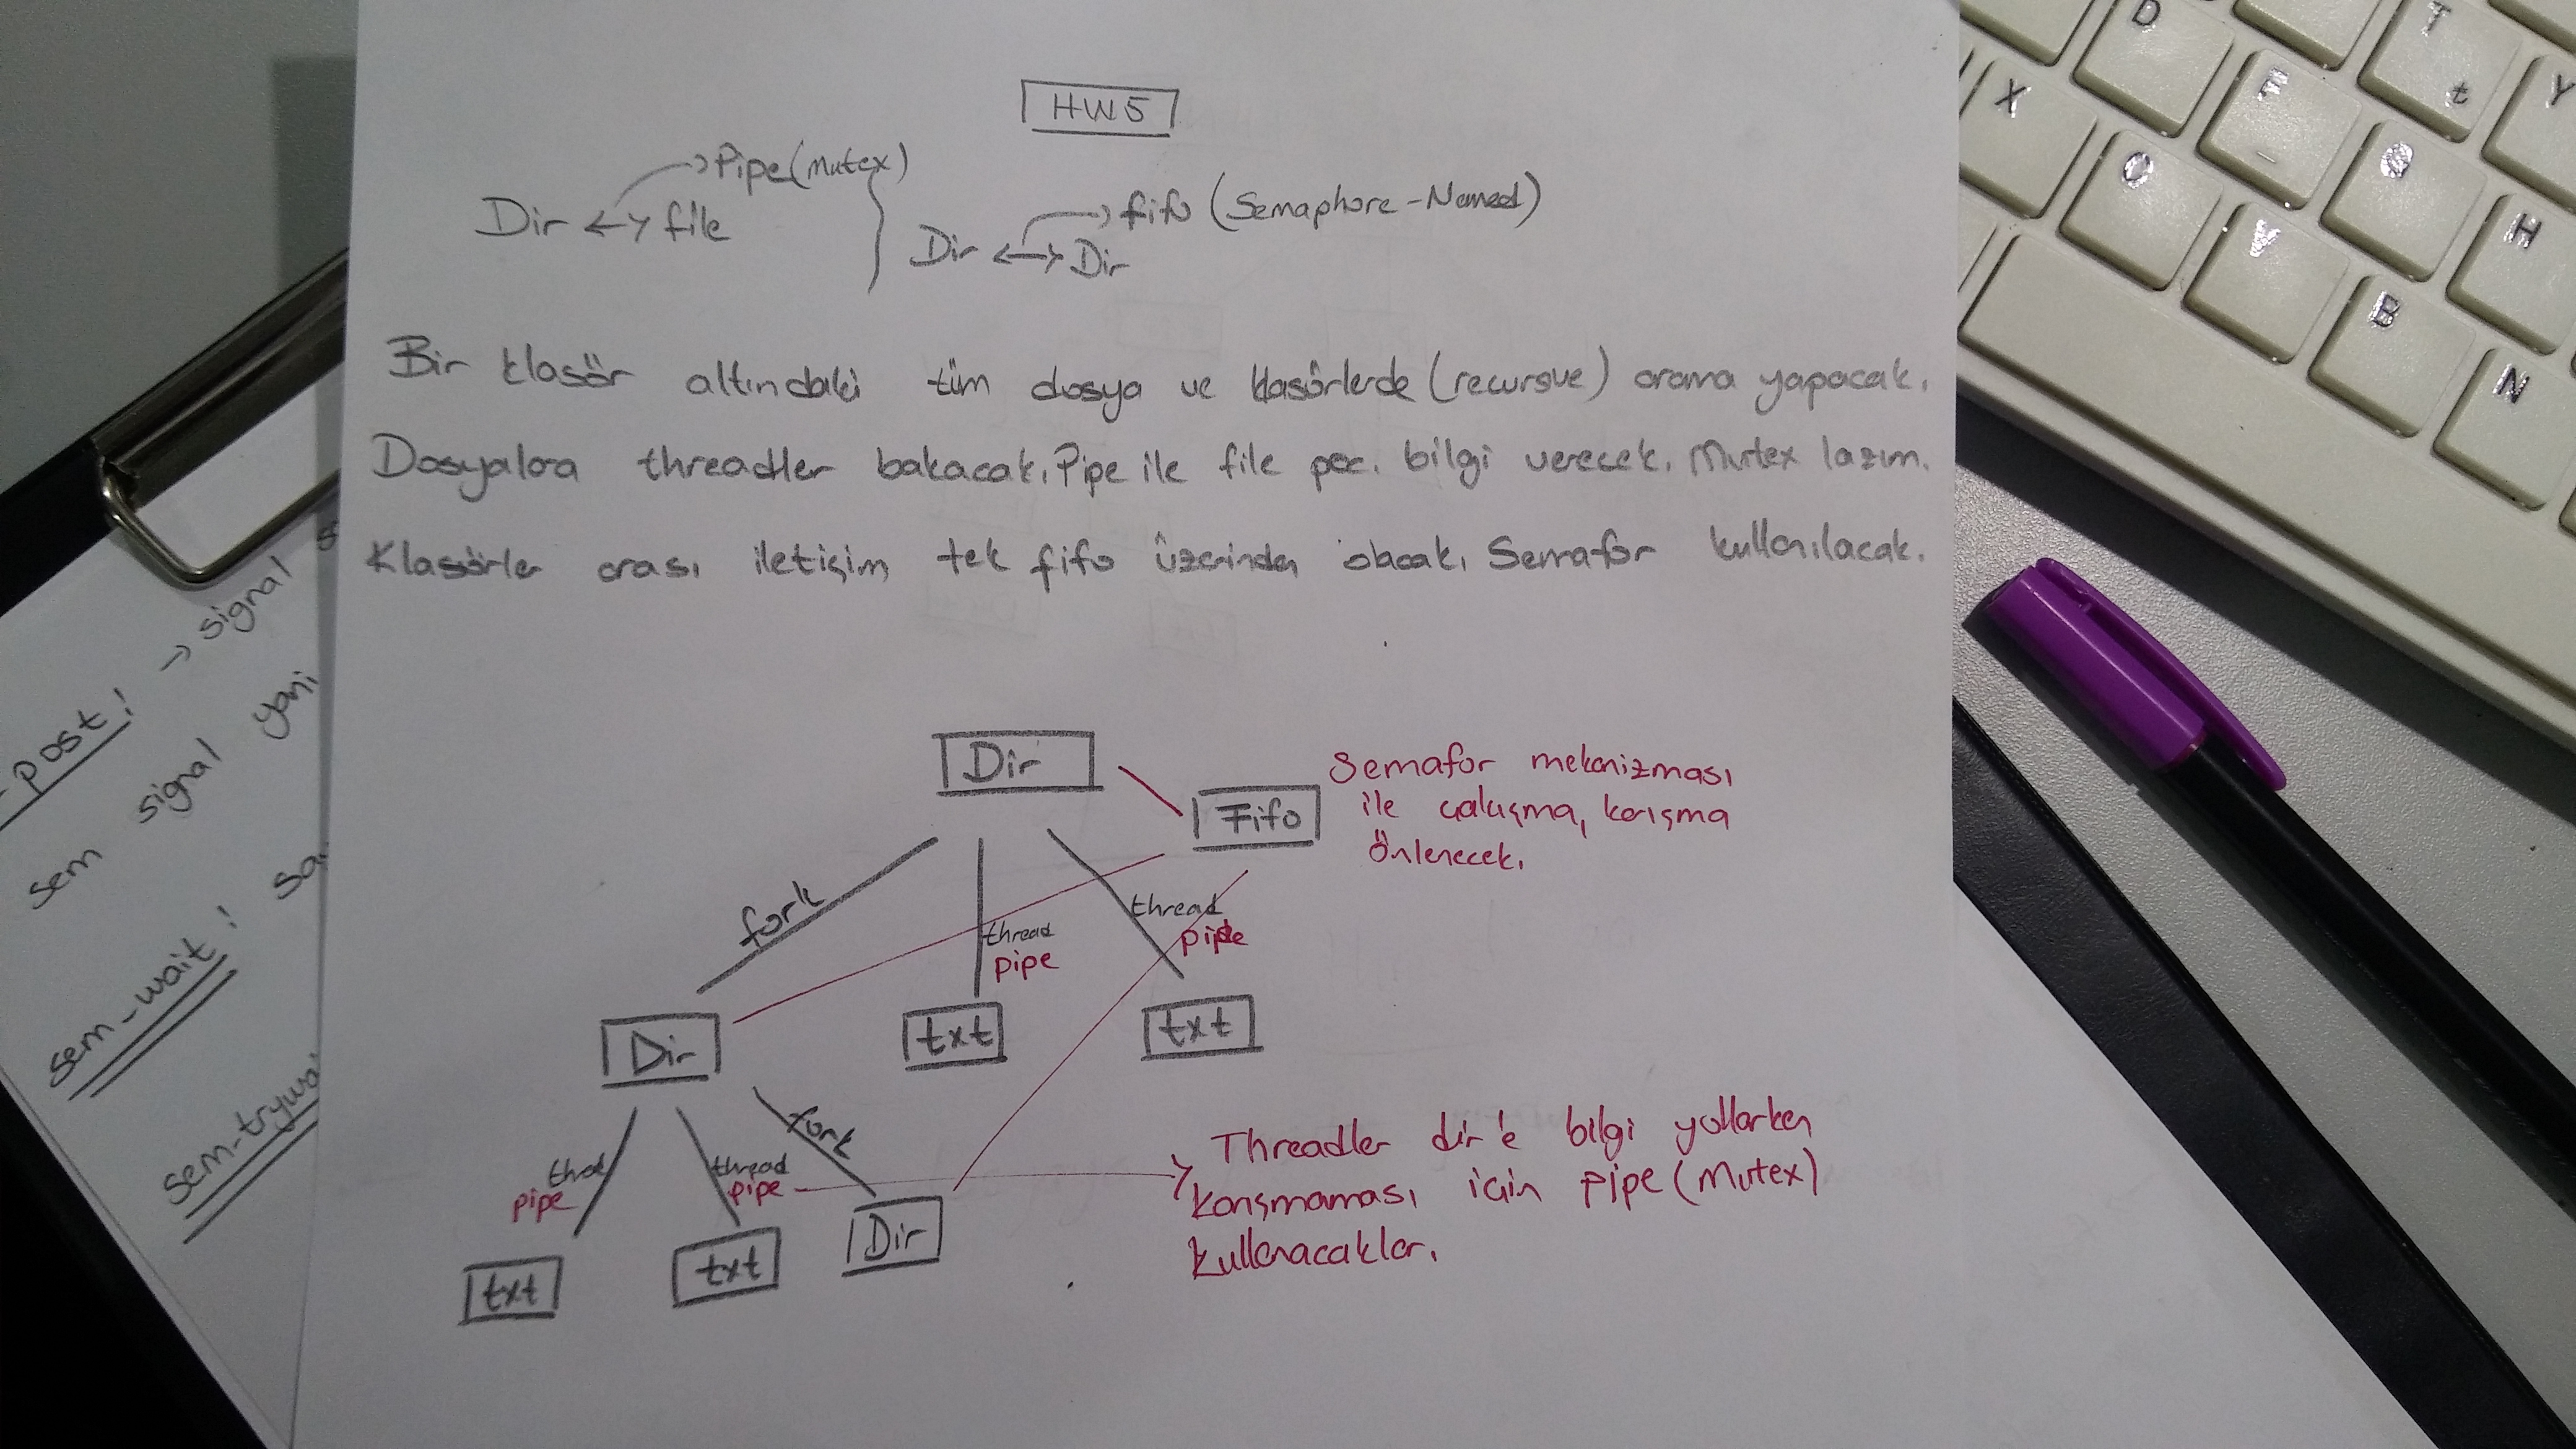 HW5
Dir <-> file
Pipe(Mutex)
Dir <-> Dir
fifo (Semaphore-Named)
Bir klasör altındaki tüm dosya ve klasörlerde (recursve) arama yapacak.
Dosyalara threadler bakacak. Pipe ile file bilgi verecek. Mutex lazım.
Klasörler arası iletişim tek fifo üzerinden olacak. Semafor kullanılacak.
Dir
Fifo
Semafor mekanizması
ile çalışma, karışma
önlenecek.
fork
thread
pipe
thread
pipe
Dir
txt
txt
fork
pipe
thread
pipe
txt
txt
Dir
Threadler dir'e bilgi yollarken
karışmaması için pipe (Mutex)
kullanacaklar.
-post! -> signal
sem signal yani
sem-wait!
sem-trywai
D
T
t
Y
X
F
C
G
H
V
B
N